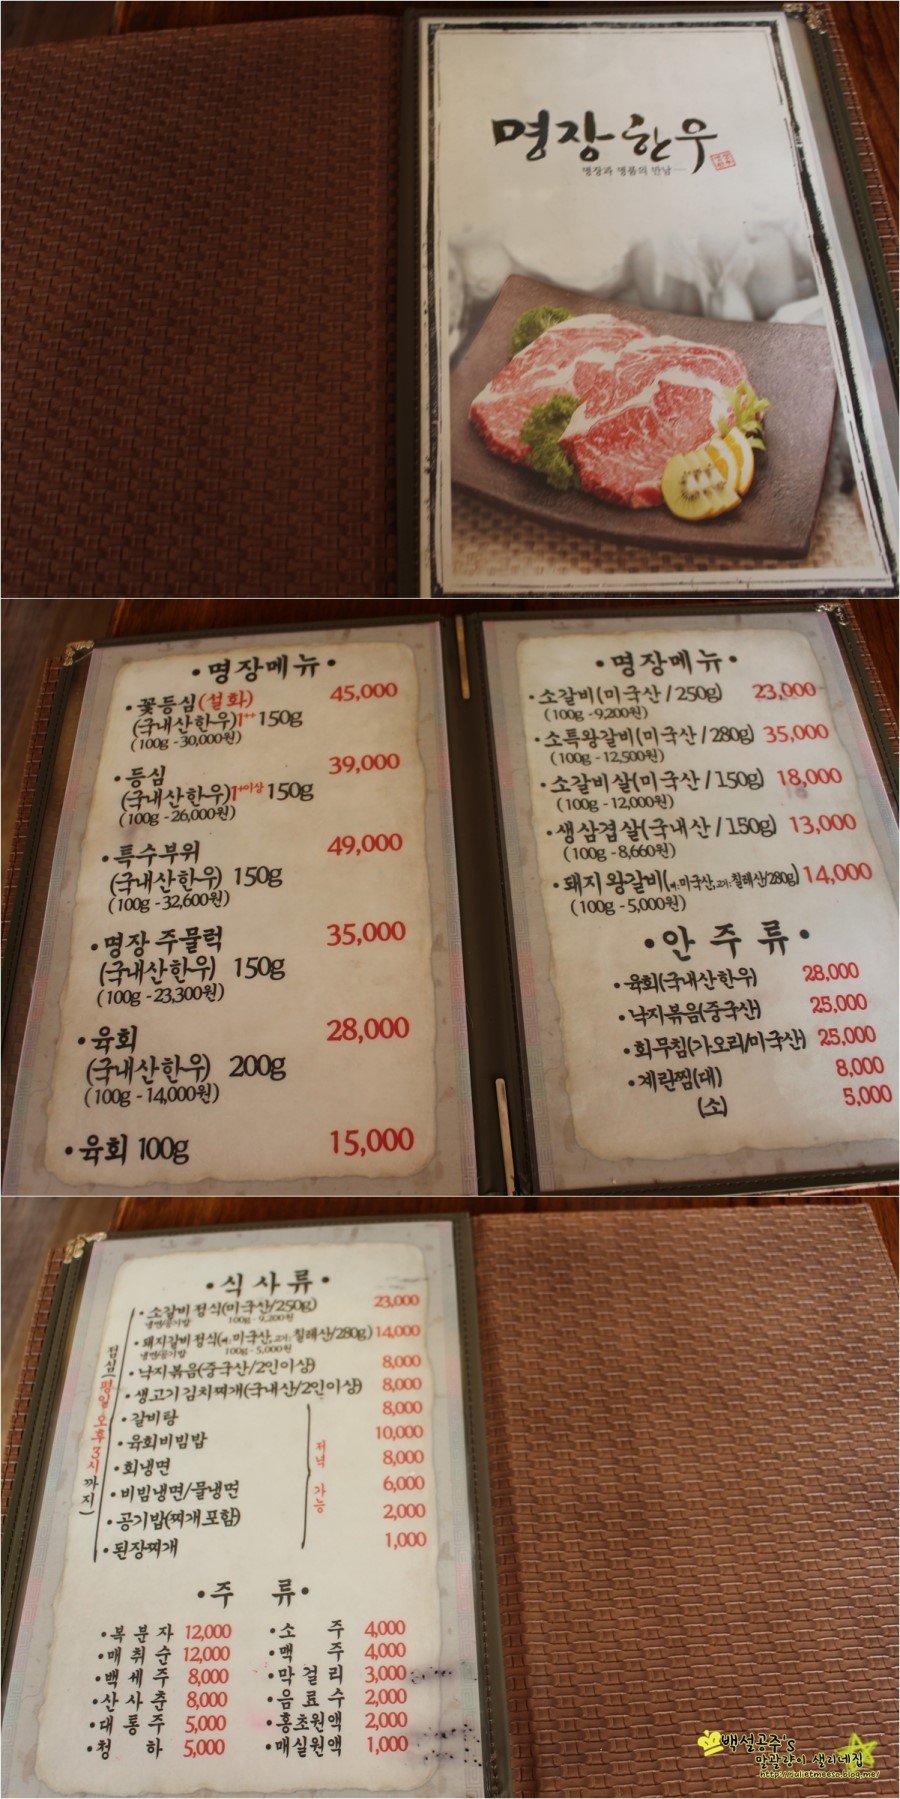 명장한우
명장과 명품의 만남
•명장메뉴•
•꽃등심(설화) 45,000
(국내산한우)1++ 150g
(100g - 30,000원)
•등심 39,000
(국내산한우)1+이상 150g
(100g - 26,000원)
•특수부위 49,000
(국내산한우) 150g
(100g - 32,600원)
•명장 주물럭 35,000
(국내산한우) 150g
(100g - 23,300원)
•육회 28,000
(국내산한우) 200g
(100g - 14,000원)
•육회 100g 15,000
•명장메뉴•
•소갈비(미국산/250g) 23,000
(100g - 9,200원)
•소특왕갈비(미국산/280g) 35,000
(100g - 12,500원)
•소갈비살(미국산/150g) 18,000
(100g - 12,000원)
•생삼겹살(국내산/150g) 13,000
(100g - 8,660원)
•돼지왕갈비(뼈:미국산,고기:칠레산/280g) 14,000
(100g - 5,000원)
•안주류•
•육회(국내산한우) 28,000
•낙지볶음(중국산) 25,000
•회무침(가오리/미국산) 25,000
•계란찜(대) 8,000
(소) 5,000
•식사류•
점심(평일오후3시까지)
•소갈비정식(미국산/250g) 23,000
냉면/공기밥 100g - 9,200원
•돼지갈비정식(뼈:미국산,고기:칠레산/280g) 14,000
냉면/공기밥 100g - 5,000원
•낙지볶음(중국산/2인이상) 8,000
•생고기김치찌개(국내산/2인이상) 8,000
•갈비탕 8,000
•육회비빔밥 10,000
•회냉면 8,000
•비빔냉면/물냉면 6,000
•공기밥(찌개포함) 2,000
•된장찌개 1,000
저녁 가능
•주류•
•복분자 12,000 •소주 4,000
•매취순 12,000 •맥주 4,000
•백세주 8,000 •막걸리 3,000
•산사춘 8,000 •음료수 2,000
•대통주 5,000 •홍초원액 2,000
•청하 5,000 •매실원액 1,000
백설공주's
말괄량이 샐리네집
http://julietmeeso.blog.me/